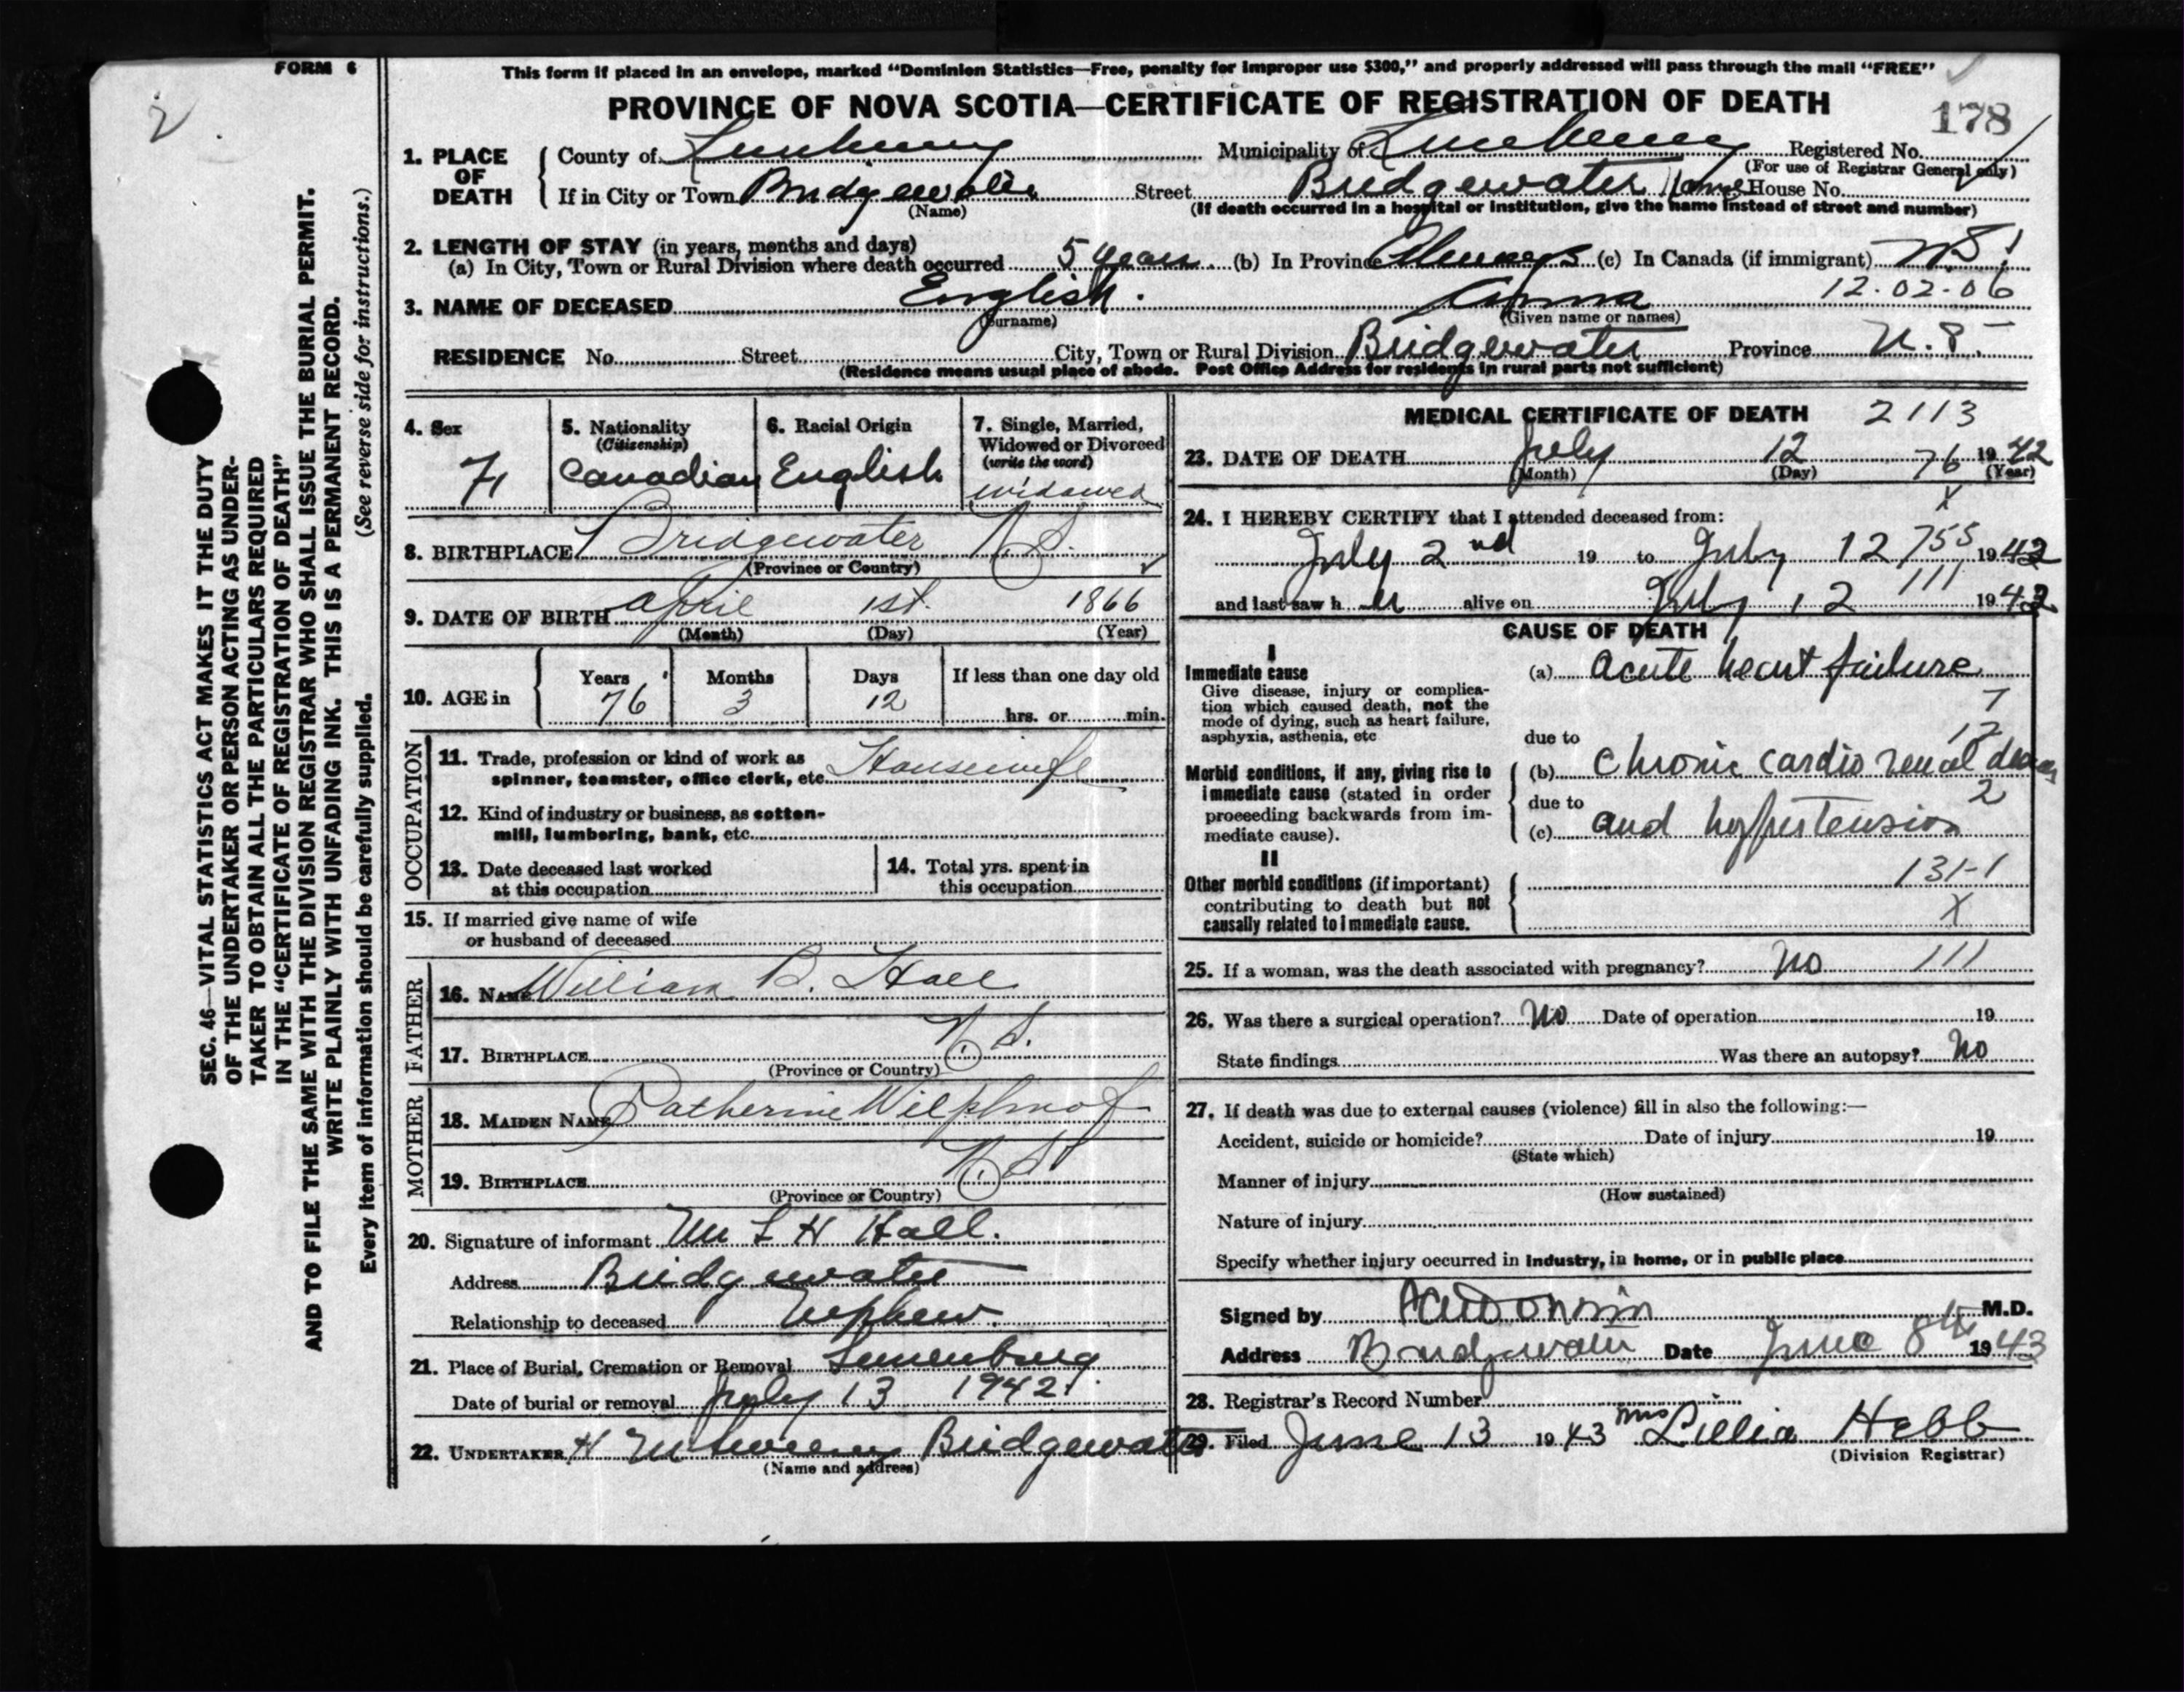 FORM 6
This form if placed in an envelope, marked "Dominion Statistics—Free, penalty for improper use $300," and properly addressed will pass through the mail "FREE"
PROVINCE OF NOVA SCOTIA—CERTIFICATE OF REGISTRATION OF DEATH
178
2
SEC. 46—VITAL STATISTICS ACT MAKES IT THE DUTY
OF THE UNDERTAKER OR PERSON ACTING AS UNDER-
TAKER TO OBTAIN ALL THE PARTICULARS REQUIRED
IN THE "CERTIFICATE OF REGISTRATION OF DEATH"
AND TO FILE THE SAME WITH THE DIVISION REGISTRAR WHO SHALL ISSUE THE BURIAL PERMIT.
WRITE PLAINLY WITH UNFADING INK. THIS IS A PERMANENT RECORD.
(See reverse side for instructions.)
Every item of information should be carefully supplied.
1. PLACE OF DEATH
County of Lunenburg Municipality of Lunenburg Registered No.
(For use of Registrar General only)
If in City or Town Bridgewater Street Bridgewater Home House No.
(Name) (If death occurred in a hospital or institution, give the name instead of street and number)
2. LENGTH OF STAY (in years, months and days)
(a) In City, Town or Rural Division where death occurred 5 years (b) In Province Always (c) In Canada (if immigrant)
12-02-06
3. NAME OF DECEASED English. Anna
(Surname) (Given name or names)
RESIDENCE No. Street City, Town or Rural Division Bridgewater Province N.S.
(Residence means usual place of abode. Post Office Address for residents in rural parts not sufficient)
4. Sex
F
5. Nationality
(Citizenship)
Canadian
6. Racial Origin
English
7. Single, Married,
Widowed or Divorced
(write the word)
widowed
8. BIRTHPLACE Bridgewater N.S.
(Province or Country)
9. DATE OF BIRTH April 1st. 1866
(Month) (Day) (Year)
10. AGE in
Years Months Days If less than one day old
76 3 12 hrs. or min.
OCCUPATION
11. Trade, profession or kind of work as
spinner, teamster, office clerk, etc. Housewife
12. Kind of industry or business, as cotton-
mill, lumbering, bank, etc.
13. Date deceased last worked
at this occupation
14. Total yrs. spent in
this occupation
15. If married give name of wife
or husband of deceased
FATHER
16. NAME William B. Hall
17. BIRTHPLACE N.S.
(Province or Country)
MOTHER
18. MAIDEN NAME Catherine
19. BIRTHPLACE N.S.
(Province or Country)
20. Signature of informant L H Hall.
Address Bridgewater
Relationship to deceased Nephew.
21. Place of Burial, Cremation or Removal Lunenburg
Date of burial or removal July 13 1942.
22. UNDERTAKER Bridgewater
(Name and address)
MEDICAL CERTIFICATE OF DEATH 2113
23. DATE OF DEATH July 12 1942
(Month) (Day) (Year)
76
X
24. I HEREBY CERTIFY that I attended deceased from:
July 2nd 19 to July 12 1942
755
and last saw her alive on July 12 1942
111
CAUSE OF DEATH
I
Immediate cause
Give disease, injury or complica-
tion which caused death, not the
mode of dying, such as heart failure,
asphyxia, asthenia, etc
(a) Acute heart failure
7
12
due to
Morbid conditions, if any, giving rise to
immediate cause (stated in order
proceeding backwards from im-
mediate cause).
(b) Chronic cardio renal disease
2
due to
(c) and hypertension
II
Other morbid conditions (if important)
contributing to death but not
causally related to immediate cause.
131-1
X
25. If a woman, was the death associated with pregnancy? No 111
26. Was there a surgical operation? No Date of operation 19
State findings Was there an autopsy? No
27. If death was due to external causes (violence) fill in also the following:—
Accident, suicide or homicide? Date of injury 19
(State which)
Manner of injury
(How sustained)
Nature of injury
Specify whether injury occurred in industry, in home, or in public place
Signed by M.D.
Address Bridgewater Date June 8th 1943
28. Registrar's Record Number
29. Filed June 13 1943 Mrs Lillia Hebb
(Division Registrar)